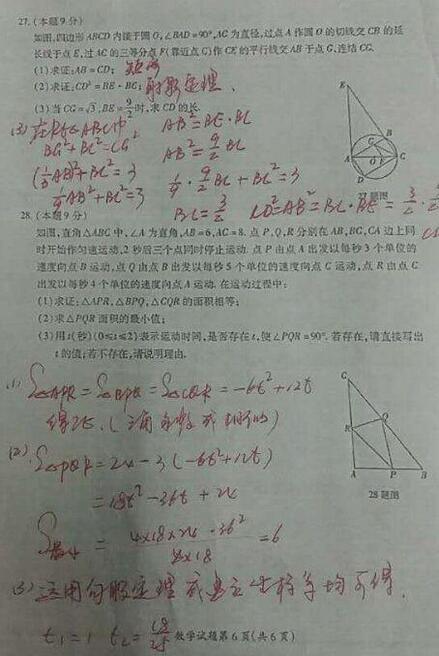 27.(本题9分)
如图,四边形ABCD内接于圆O,∠BAD=90°,AC为直径,过点A作圆O的切线交CB的延
长线于点E,过AC的三等分点F(靠近点C)作CE的平行线交AB于点G,连结CG.
(1)求证:AB=CD; 矩形
(2)求证:CD²=BE·BC; 射影定理.
(3)当CG=√3,BE=9/2时,求CD的长.
(3) 在Rt△ABC中, AB²=BE·BC
BG²+BC²=CG² AB²=9/2 BC
(1/3 AB)²+BC²=3 1/9·9/2 BC+BC²=3
1/9 AB²+BC²=3 BC=3/2 CD²=AB²=BC·BE=3/2·
E
B
A G C
O F
D
27题图
28.(本题9分)
如图,直角△ABC中,∠A为直角,AB=6,AC=8.点P,Q,R分别在AB,BC,CA边上同
时开始作匀速运动,2秒后三个点同时停止运动.点P由点A出发以每秒3个单位的
速度向点B运动,点Q由点B出发以每秒5个单位的速度向点C运动,点R由点C
出发以每秒4个单位的速度向点A运动.在运动过程中:
(1)求证:△APR,△BPQ,△CQR的面积相等;
(2)求△PQR面积的最小值;
(3)用t(秒)(0≤t≤2)表示运动时间,是否存在t,使∠PQR=90°.若存在,请直接写出
t的值;若不存在,请说明理由.
(1) S△APR=S△BPQ=S△CQR=-6t²+12t
得证.(三角函数或相似)
(2) S△PQR=24-3(-6t²+12t)
=18t²-36t+24
S最小=(4×18×24-36²)/(4×18)=6
(3) 运用勾股定理或建立坐标等均可得.
t₁=1 t₂=18/25
C
Q
R
A P B
28题图
数学试题第6页(共6页)